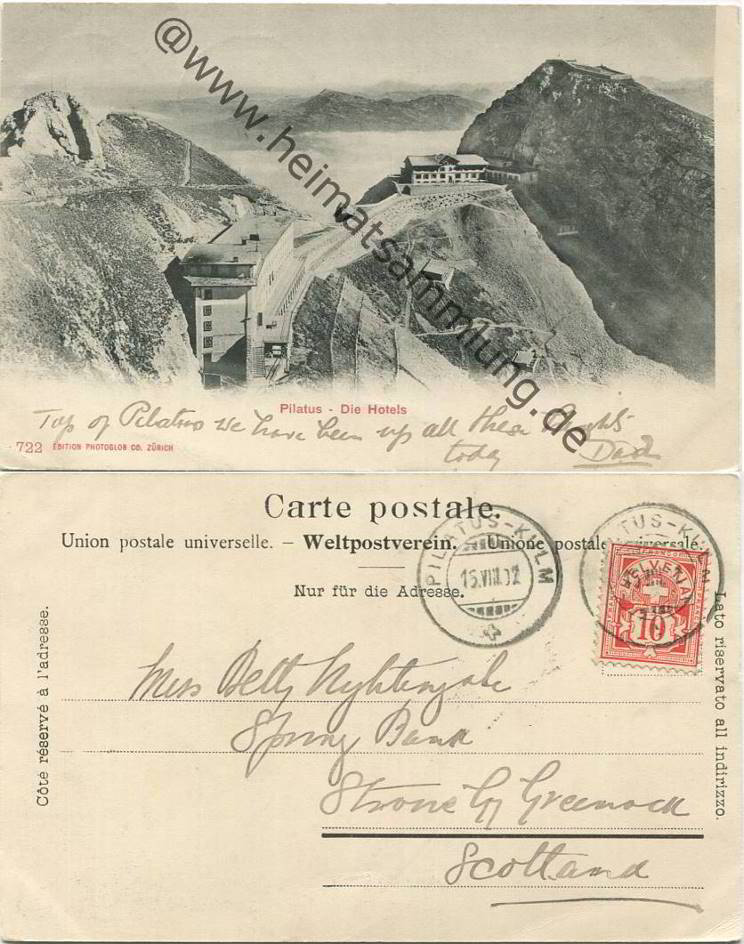 @www.heimatsammlung.de
Pilatus - Die Hotels
Top of Pilatus we have been up all these heights
today Dad
722 EDITION PHOTOGLOB CO. ZÜRICH
Carte postale.
Union postale universelle. – Weltpostverein. – Unione postale universale.
Nur für die Adresse.
PILATUS-KULM
15.VIII.02
PILATUS-KULM
FRANCO
HELVETIA
10
Côté réservé à l'adresse.
Lato riservato all indirizzo.
Miss Betty Nightingale
Spring Bank
Strone by Greenock
Scotland